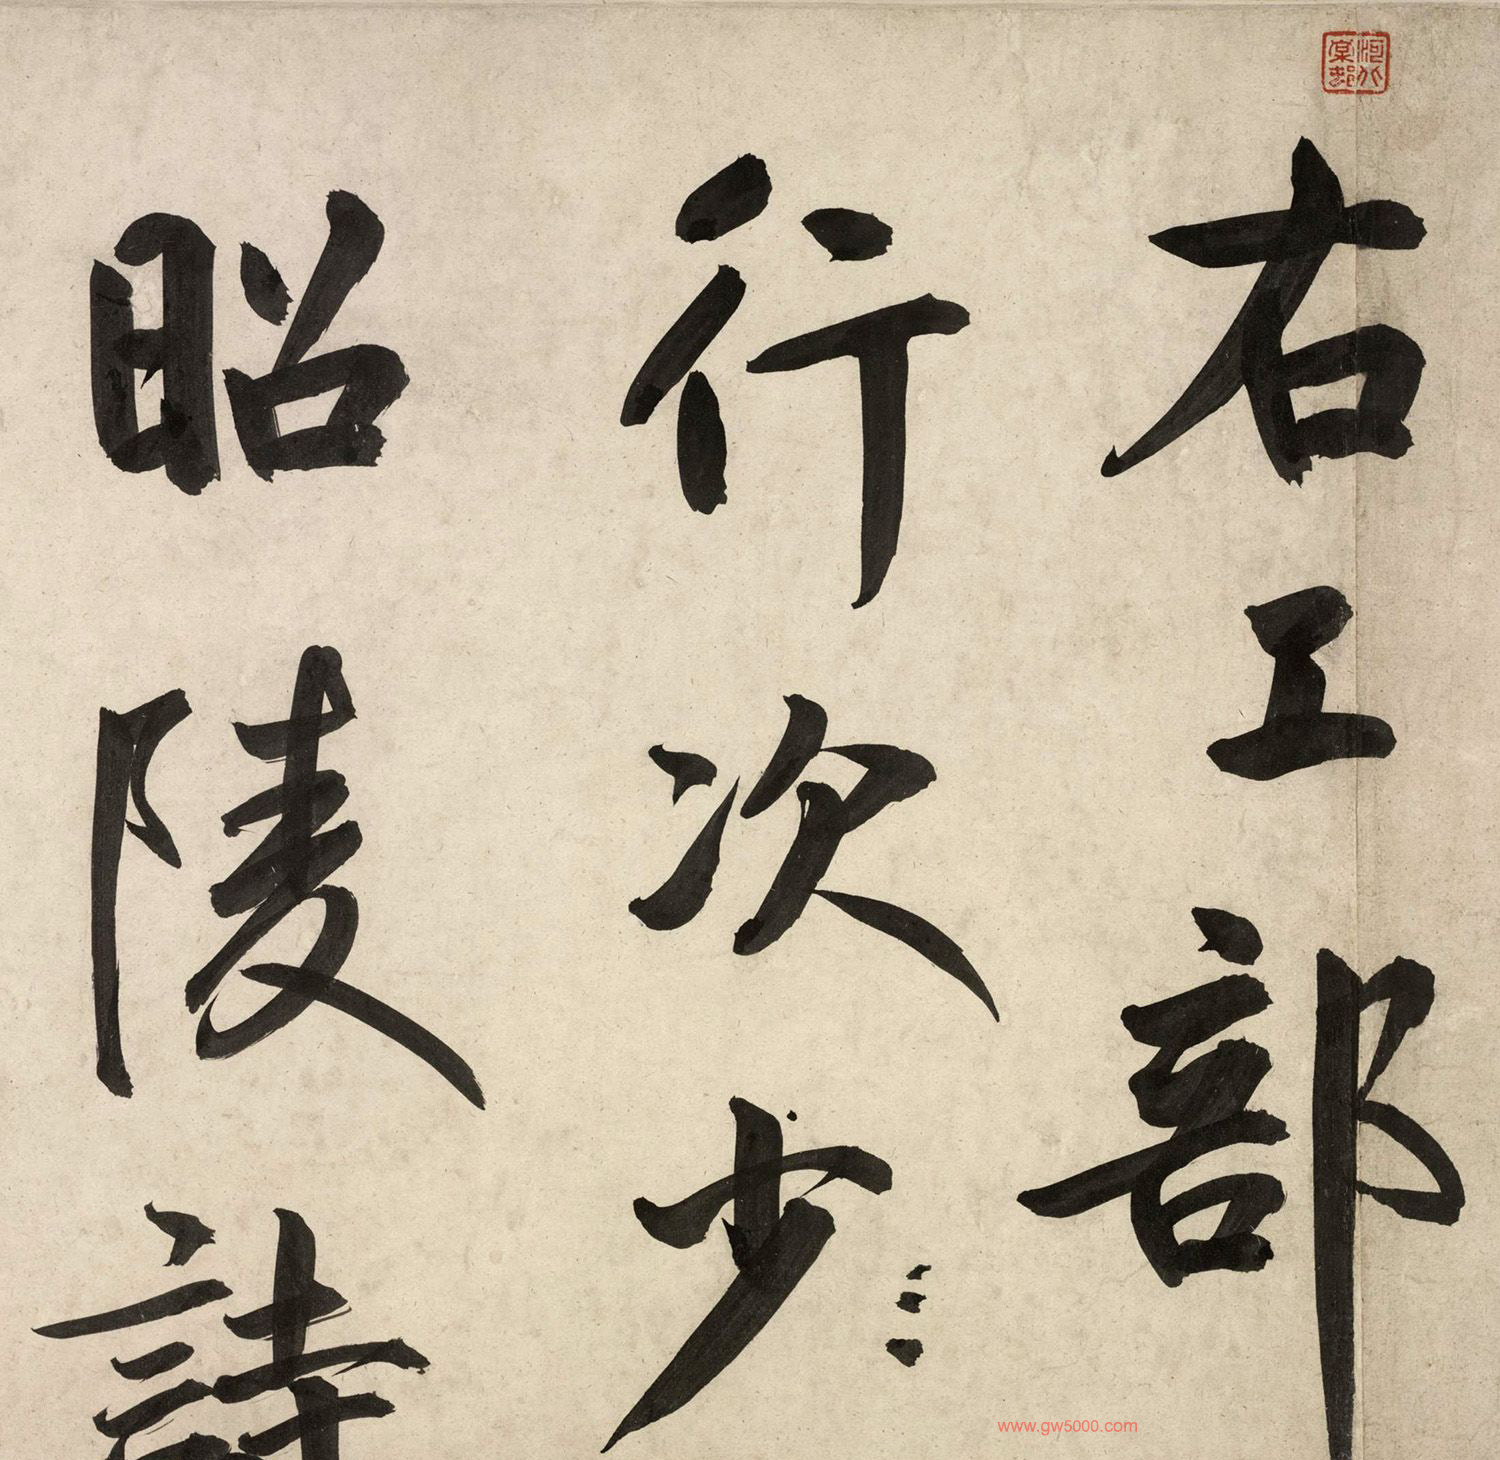 右工部
行次少
昭陵詩
www.gw5000.com